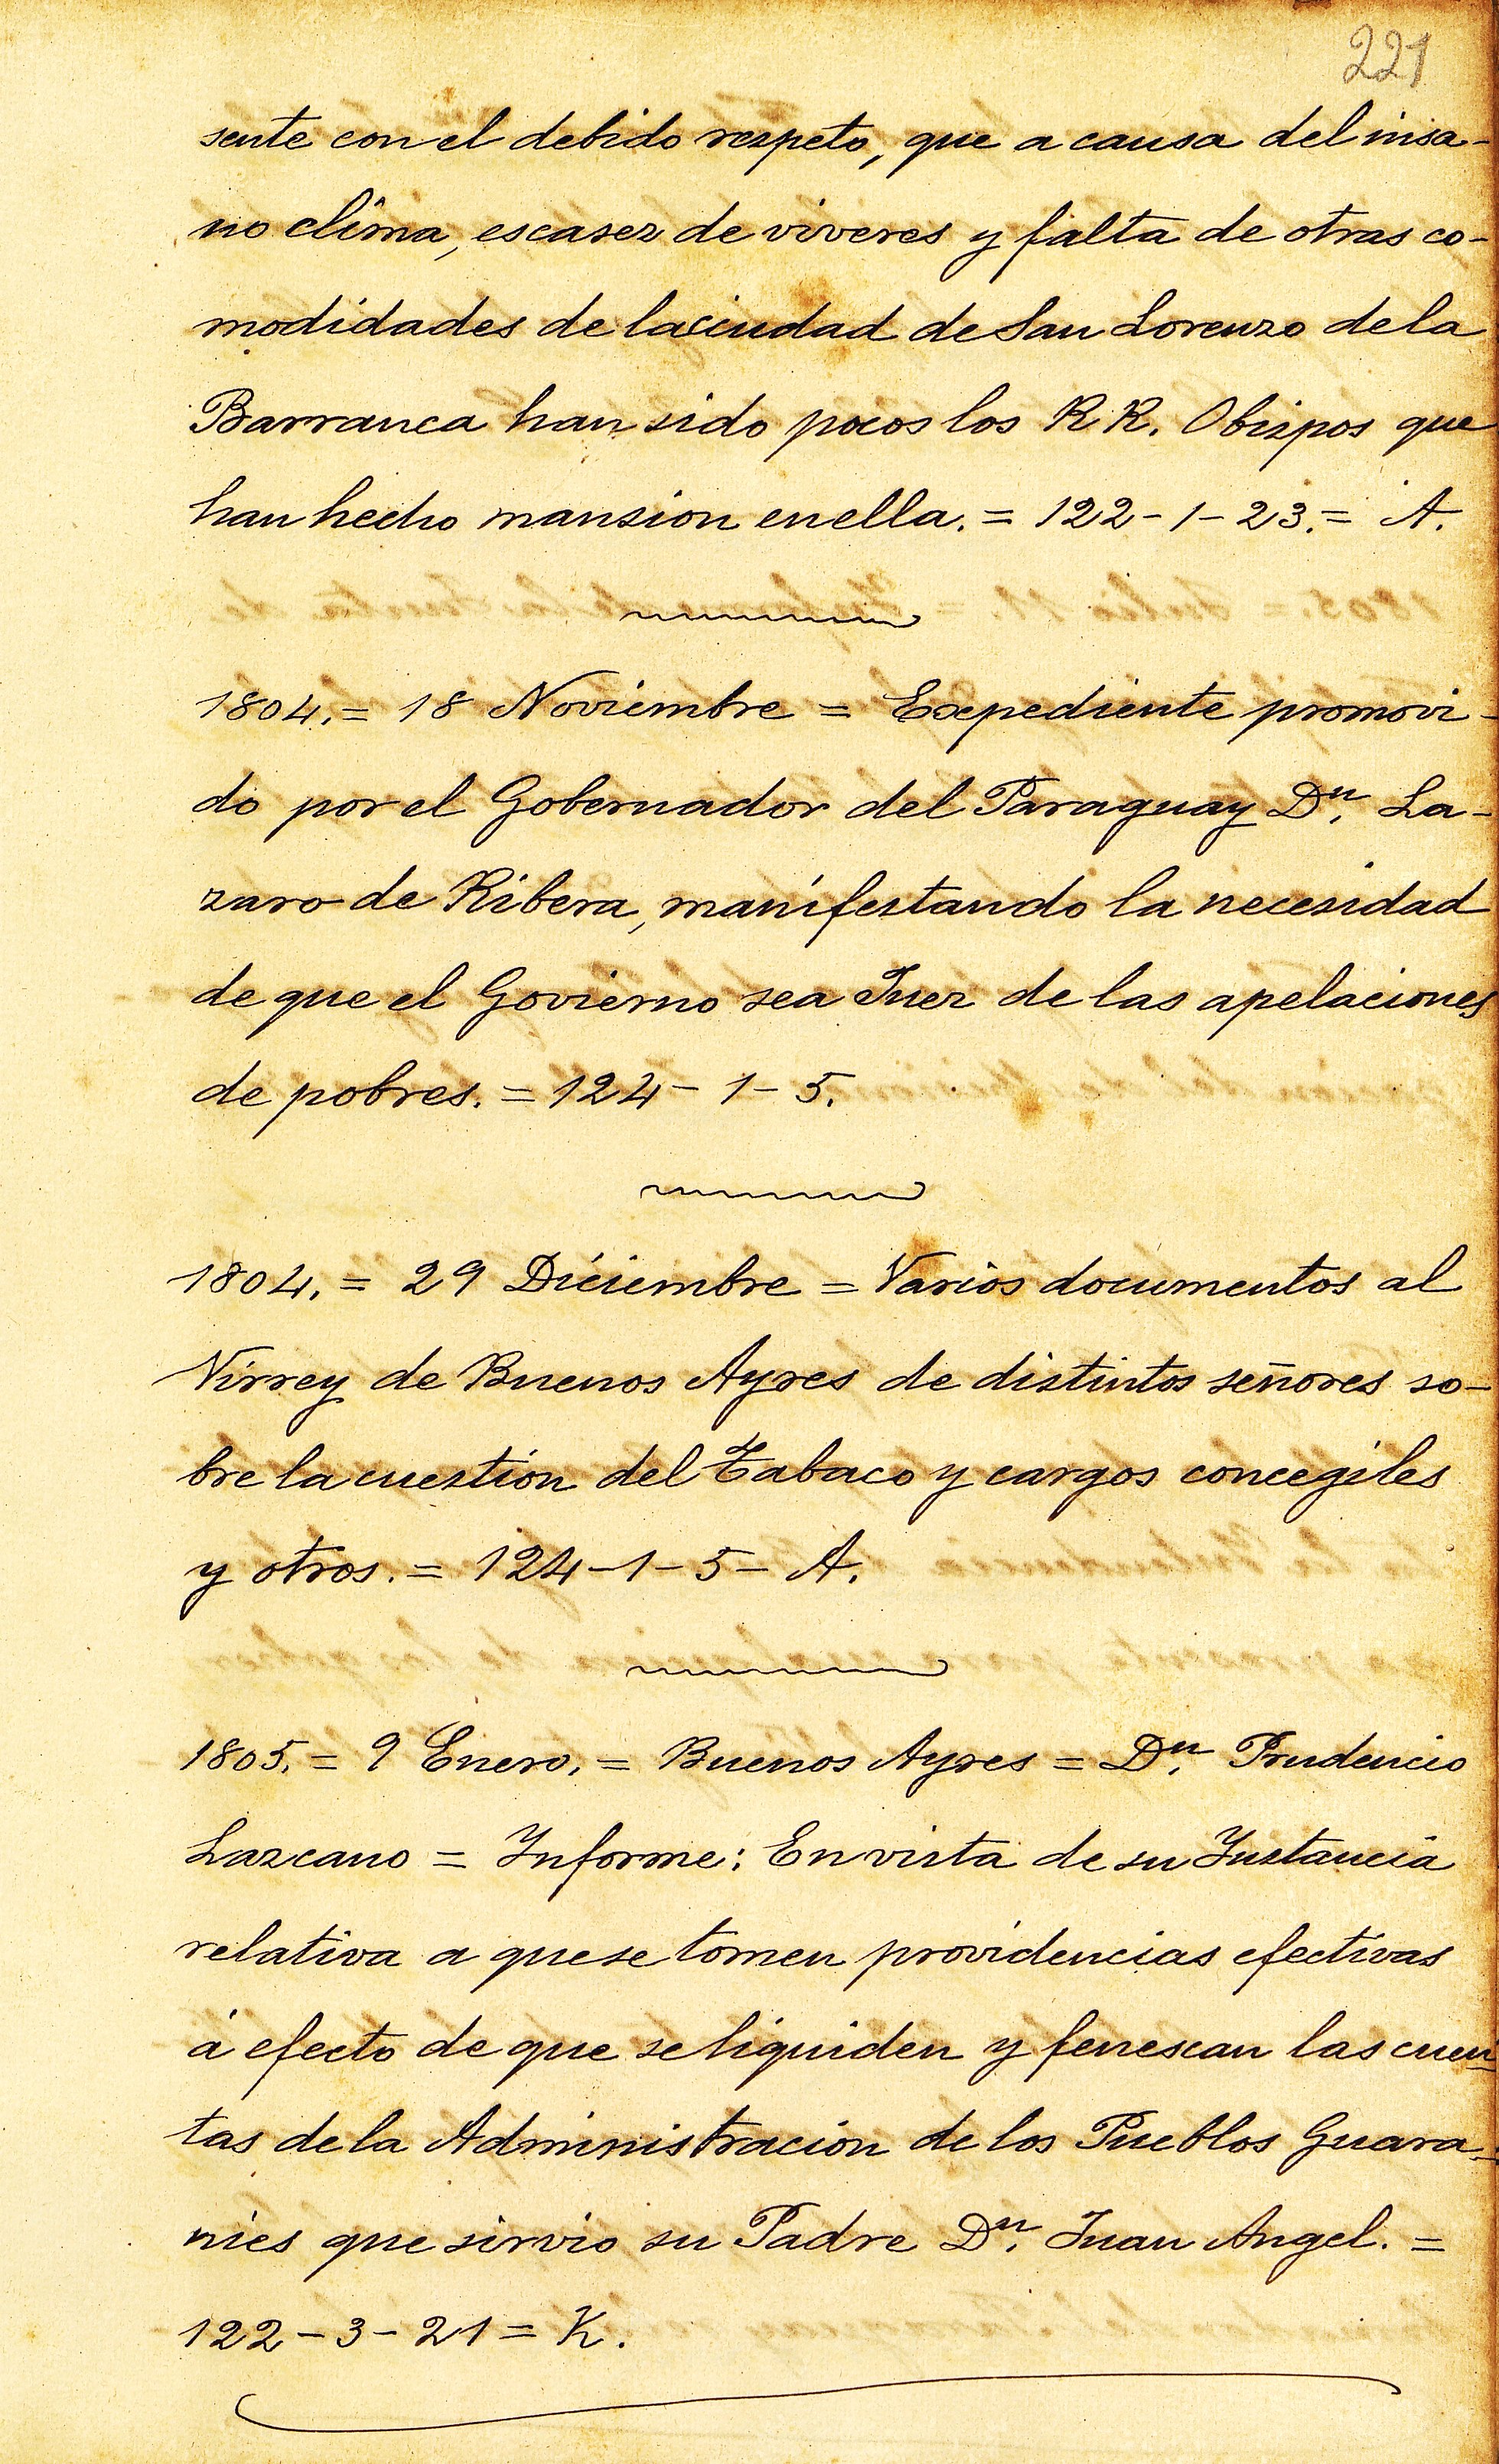 221
sente con el debido respeto, que a causa del insa-
no clima, escasez de viveres y falta de otras co-
modidades de la ciudad de San Lorenzo de la
Barranca han sido pocos los R R. Obispos que
han hecho mansion en ella. = 122-1-23. = A.
1804. = 18 Noviembre = Expediente promovi-
do por el Gobernador del Paraguay Dn. La-
zaro de Ribera, manifestando la necesidad
de que el Govierno sea Juez de las apelaciones
de pobres. = 124-1-5.
1804. = 29 Diciembre = Varios documentos al
Virrey de Buenos Ayres de distintos señores so-
bre la cuestion del Tabaco y cargos concegiles
y otros. = 124-1-5 = A.
1805. = 9 Enero. = Buenos Ayres = Dn. Prudencio
Lazcano = Informe: En vista de su Instancia
relativa a que se tomen providencias efectivas
á efecto de que se liquiden y fenescan las cuen-
tas de la Administración de los Pueblos Guara-
nies que sirvio su Padre Dn. Juan Angel. =
122-3-21 = K.